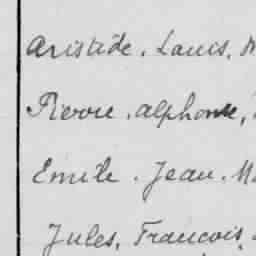 Aristide. Louis. M
Pierre. alphonse,
Emile. Jean. Ma
Jules, Francois.